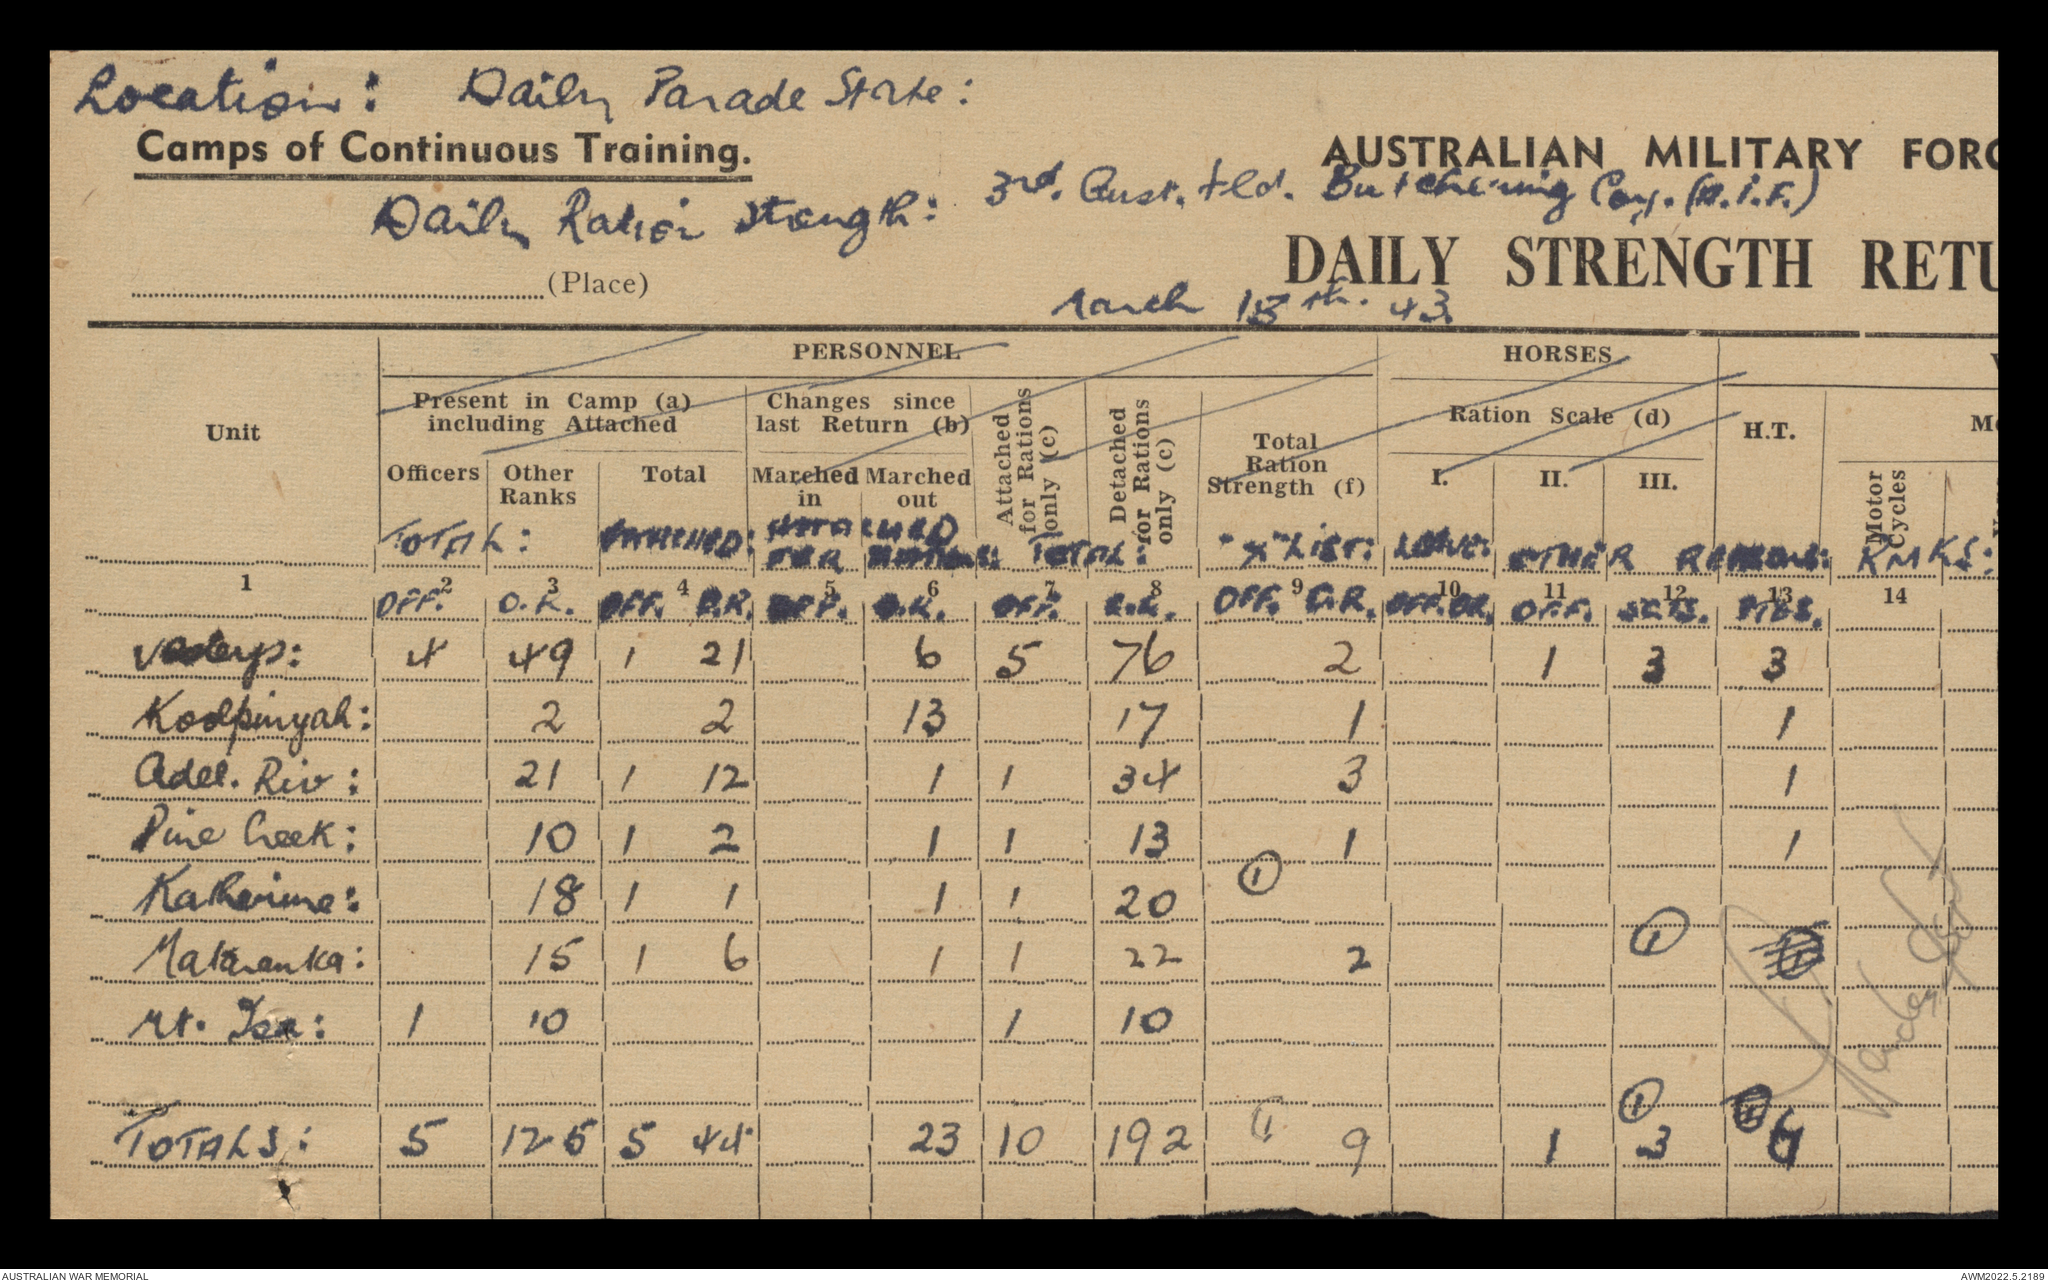 Location: Daily Parade State:
Camps of Continuous Training.
AUSTRALIAN MILITARY FORC
3rd. Aust. Fld. Butchering Coy. (A.I.F.)
Daily Ration Strength:
DAILY STRENGTH RETU
(Place)
March 18th. 43.
PERSONNEL HORSES V
Present in Camp (a) including Attached
Changes since last Return (b)
Attached for Rations only (c)
Detached for Rations only (c)
Total Ration Strength (f)
Ration Scale (d)
H.T.
Mo
Unit
Officers Other Ranks Total Marched in Marched out I. II. III. Motor Cycles
TOTAL: ATTACHED: ATTACHED FOR RATIONS: TOTAL: "X" LIST: LEAVE: OTHER REASONS: RMKS:
1 2 3 4 5 6 7 8 9 10 11 12 13 14
OFF. O.R. OFF. O.R. OFF. O.R. OFF. O.R. OFF. O.R. OFF. OR. OFF. SGTS. PTES.
4 49 1 21 6 5 76 2 1 3 3
Koolpinyah: 2 2 13 17 1 1
Adel. Riv: 21 1 12 1 1 34 3 1
Pine Creek: 10 1 2 1 1 13 1 1
Katherine: 18 1 1 1 1 20 1
Mataranka: 15 1 6 1 1 22 2 1
Mt. Isa: 1 10 1 10
TOTALS: 5 125 5 44 23 10 192 1 9 1 1 3 6
AUSTRALIAN WAR MEMORIAL
AWM2022.5.2189